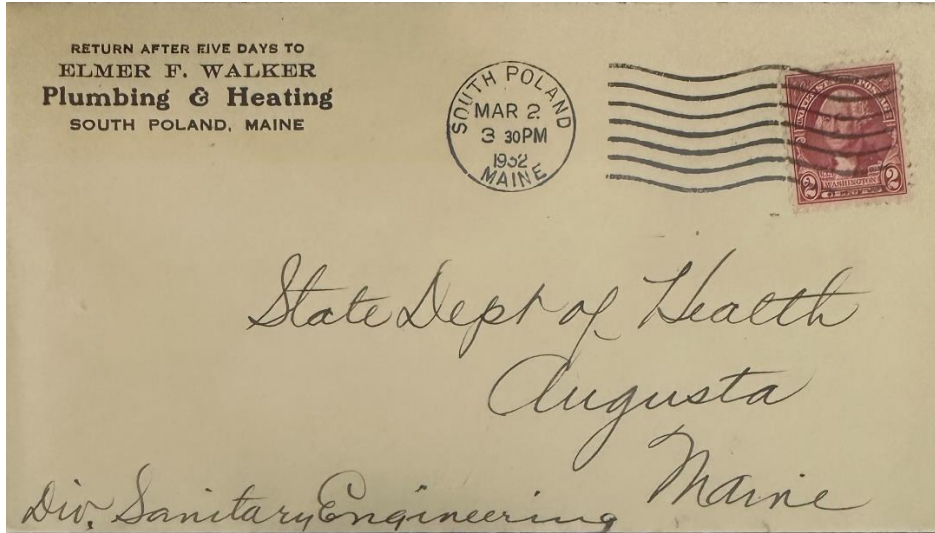 RETURN AFTER FIVE DAYS TO
ELMER F. WALKER
Plumbing & Heating
SOUTH POLAND, MAINE
SOUTH POLAND
MAR 2
3 30PM
1932
MAINE
UNITED STATES POSTAGE
WASHINGTON
2 2
State Dept of Health
Augusta
Maine
Div. Sanitary Engineering